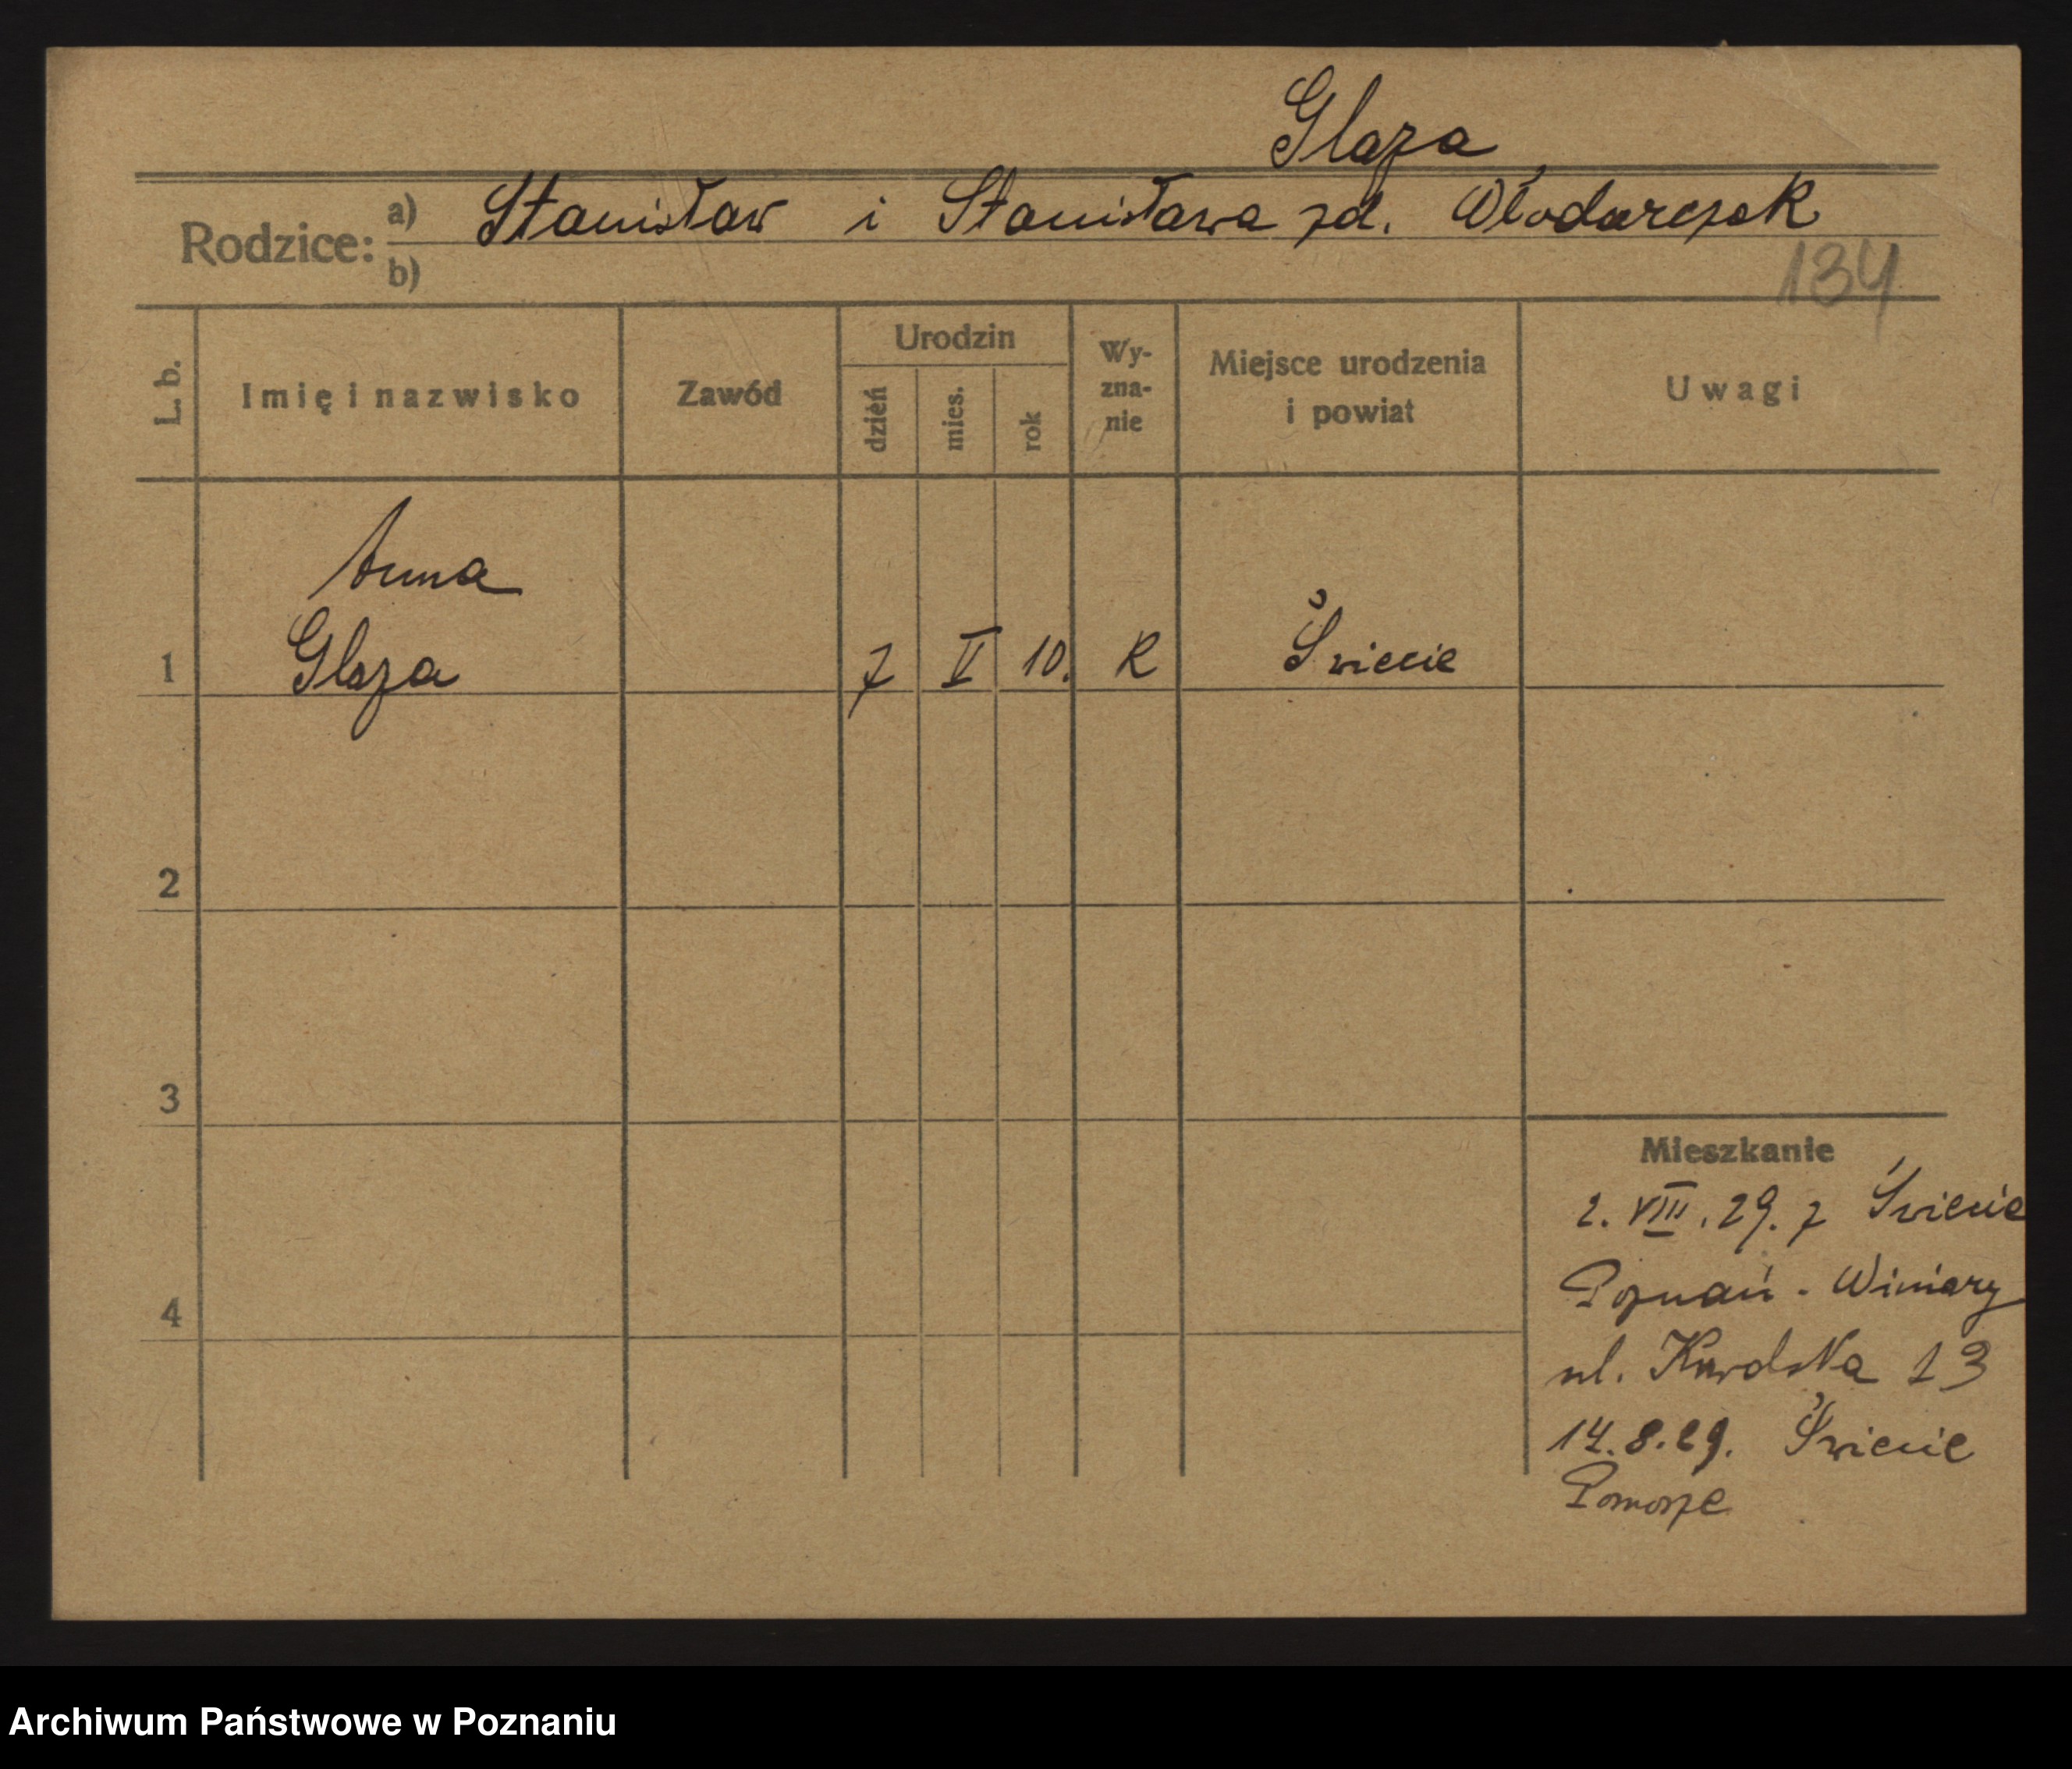 Glaza
Rodzice: a) Stanisław i Stanisława zd. Włodarczak
b)
134
L. b. Imię i nazwisko Zawód Urodzin dzień mies. rok Wy-zna-nie Miejsce urodzenia i powiat Uwagi
Anna
1 Glaza 7 V 10. R Świecie
2
3
Mieszkanie
2. VIII. 29. z Świecie
Poznań - Winiary
4
ul. 13
14.8.29. Świecie
Pomorze
Archiwum Państwowe w Poznaniu